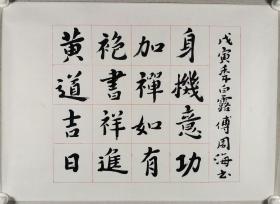 黄袍加身
道書禪機
吉祥如意
日進有功
戊寅秊白露傅周海书